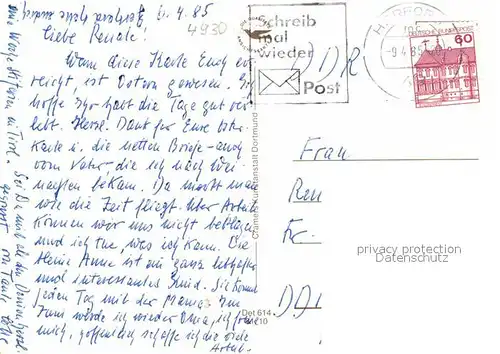 6.4.85
4930
Liebe Renate!
Wenn diese Karte Euch er-
reicht, ist Ostern gewesen. Ich
hoffe Ihr habt die Tage gut ver-
lebt. Herzl. Dank für Eure Oster-
karte u. die netten Briefe - auch
vom Vater, die ich nach Wei-
nachten bekam. Da merkt man
wie die Zeit fliegt. Über Arbeit
können wir uns nicht beklagen
und ich tue, was ich kann. Die
kleine Anne ist ein ganz lebhaftes
und interessantes Kind. Sie kommt
jeden Tag mit der Mama. Im
Juni werde ich wieder Oma, ich freue
mich, hoffentlich schaffe ich die viele
Arbeit.
eine Woche Skifahren in Tirol.
Sei Du mit all den Deinen herzl.
gegrüßt von Tante
Schreib
mal
wieder
Post
HERFORD
-9.4.85
60
DDR
Frau
Ren
Fr.
DD
privacy protection
DatenSchutz
Cramers Kunstanstalt Dortmund
Det 614
10